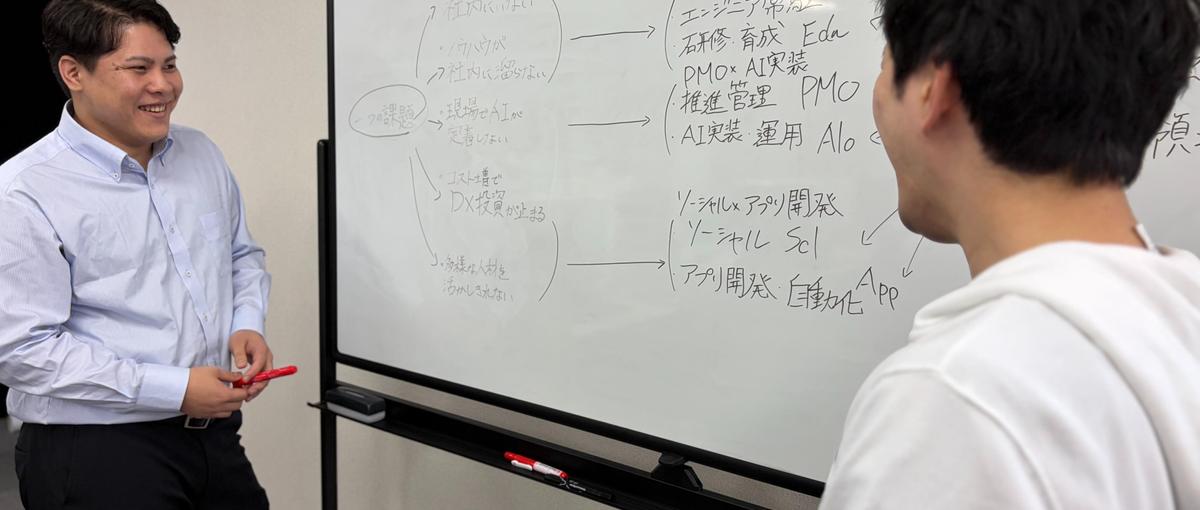 社内にいない
・ノウハウが
社内に溜らない
一つの課題
・現場でAIが
定着しない
・コスト増で
DX投資が止まる
・多様な人材を
活かしきれない
研修・育成 Edu
PMO×AI実装
推進管理 PMO
・AI実装・運用 AIo
ソーシャル×アプリ開発
ソーシャル Scl
・アプリ開発・自動化 App
領